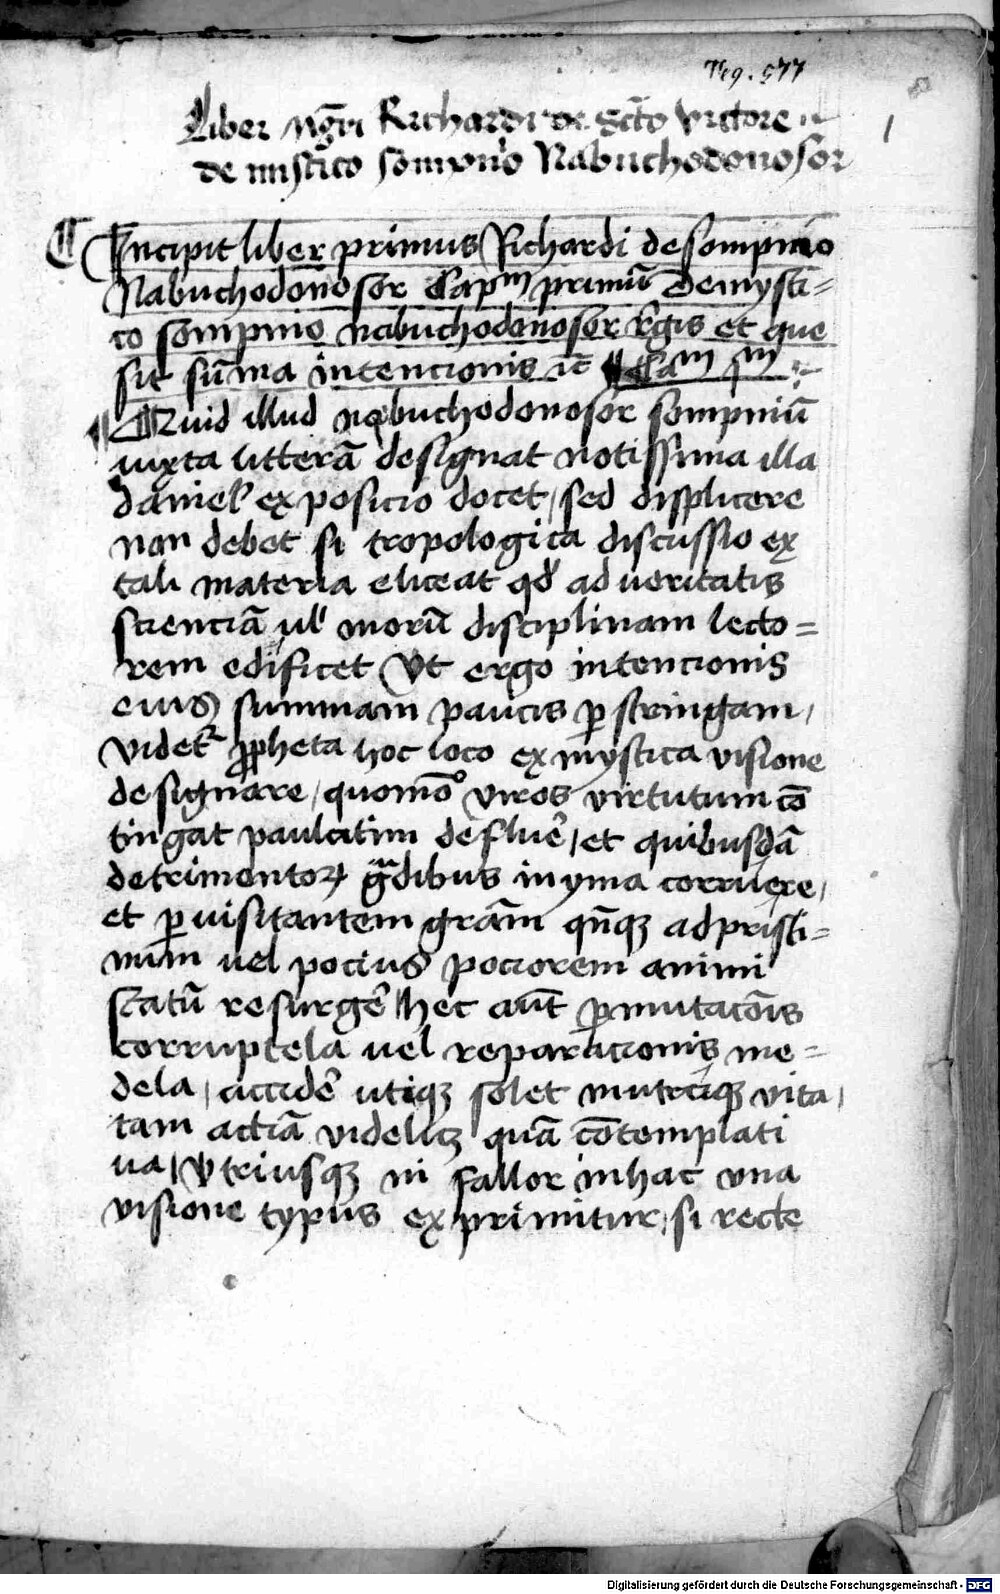 Teg. 577
1
Liber mgri Richardi de Scto Victore
de mistico sompnio Nabuchodonosor
¶ Incipit liber primus Richardi de sompnio
Nabuchodonosor Capm primū De mysti=
co sompnio nabuchodonosor rēgis et que
sit sūma intencionis
Quid illud nabuchodonosor sompniū
iuxta litterā designat notissima illa
daniel' exposicio docet, sed displicere
non debet si tropologica discussio ex
tali materia eliceat qd' ad veritatis
scienciā ul' morū disciplinam lecto=
rem edificet Vt ergo intencionis
eius summam paucis pstringam,
videtr ppheta hoc loco ex mystica visione
designare, quomō viros virtutum cō
tingat paulatim defluē, et quibusdā
detrimentoꝝ gdibus in yma corruere,
et p visitantem grām qn̄qꝫ ad pristi=
num uel pocius pociorem animi
statū resurgē, hec aūt pmutacōis
corruptela uel reparacionis me=
dela, accidē utiqꝫ solet in utraqꝫ vita,
tam actiā videlicꝫ quā cōtemplati
ua, Vtriusqꝫ ni fallor in hac vna
visione typus exprimitur, si recte
Digitalisierung gefördert durch die Deutsche Forschungsgemeinschaft - DFG